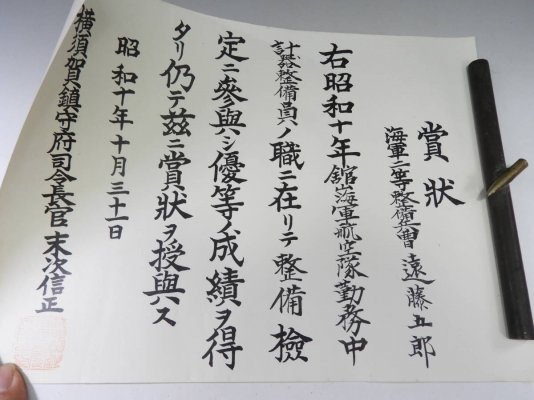 賞狀
海軍二等整備兵曹 遠藤五郎
右昭和十年舘山海軍航空隊勤務中
計器整備員ノ職ニ在リテ整備檢
定ニ參與シ優等ノ成績ヲ得
タリ仍テ茲ニ賞狀ヲ授與ス
昭和十年十月三十一日
橫須賀鎭守府司令長官 末次信正